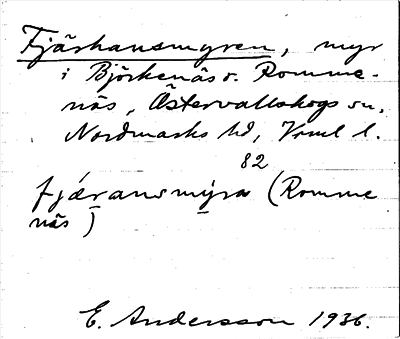 Fjärhansmyren, myr
i Björkenäs o. Romme-
näs, Östervallskogs sn,
Nordmarks hd, Vrml l.
82
fjæransmyra (Romme
näs)
E. Andersson 1936.